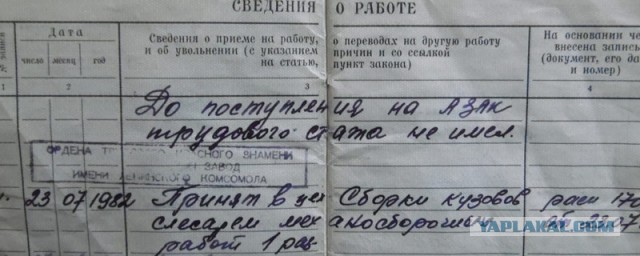 СВЕДЕНИЯ О РАБОТЕ
№ записи
Дата
число месяц год
Сведения о приеме на работу, о переводах на другую работу
и об увольнении (с указанием причин и со ссылкой
на статью, пункт закона)
На основании че
внесена запись
(документ, его да
и номер)
1 2 3 4
До поступления на АЗЛК
трудового стажа не имел.
ОРДЕНА ТР КРАСНОГО ЗНАМЕНИ
ЗАВОД
ИМЕНИ ЛЕНИНСКОГО КОМСОМОЛА
1. 23 07 1982 Принят в цех Сборки кузовов расп 170
слесарем механосборочных от 22 07
работ 1 раз
YAPLAKAL.COM